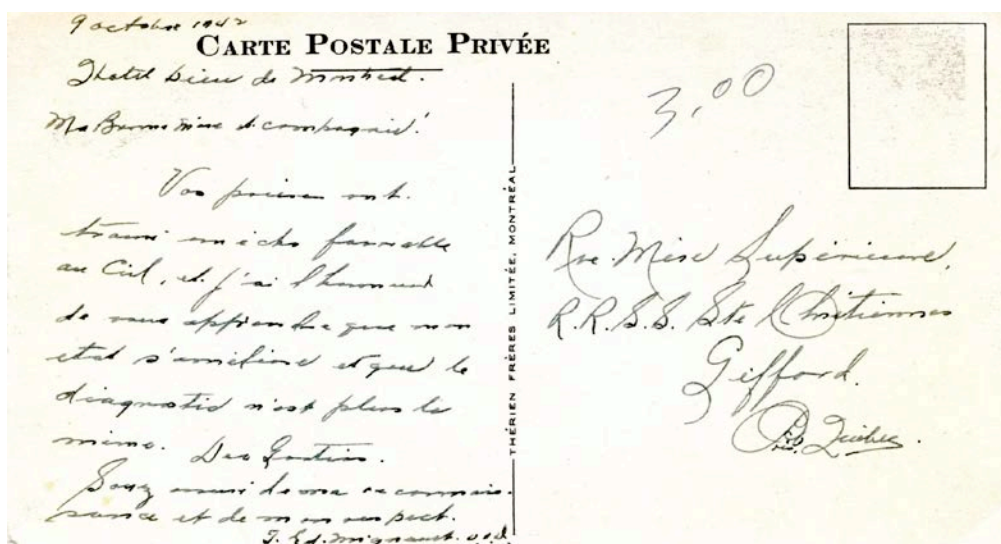 9 octobre 1942
CARTE POSTALE PRIVÉE
Hotel Dieu de Montreal.
Ma Bonne Mère et compagnie!
Vos prieres ont
trouvé un écho favorable
au Ciel, et j'ai l'honneur
de vous apprendre que mon
etat s'améliore et que le
diagnostic n'est plus le
même. Deo Gratias.
Soyez assuré de ma reconnais-
sance et de mon respect.
J. Ed. Mignault
THÉRIEN FRÈRES LIMITÉE, MONTRÉAL
3,00
Rve. Mère Supérieure,
R.R.S.S. Ste Chrétiennes
Giffard.
Québec.